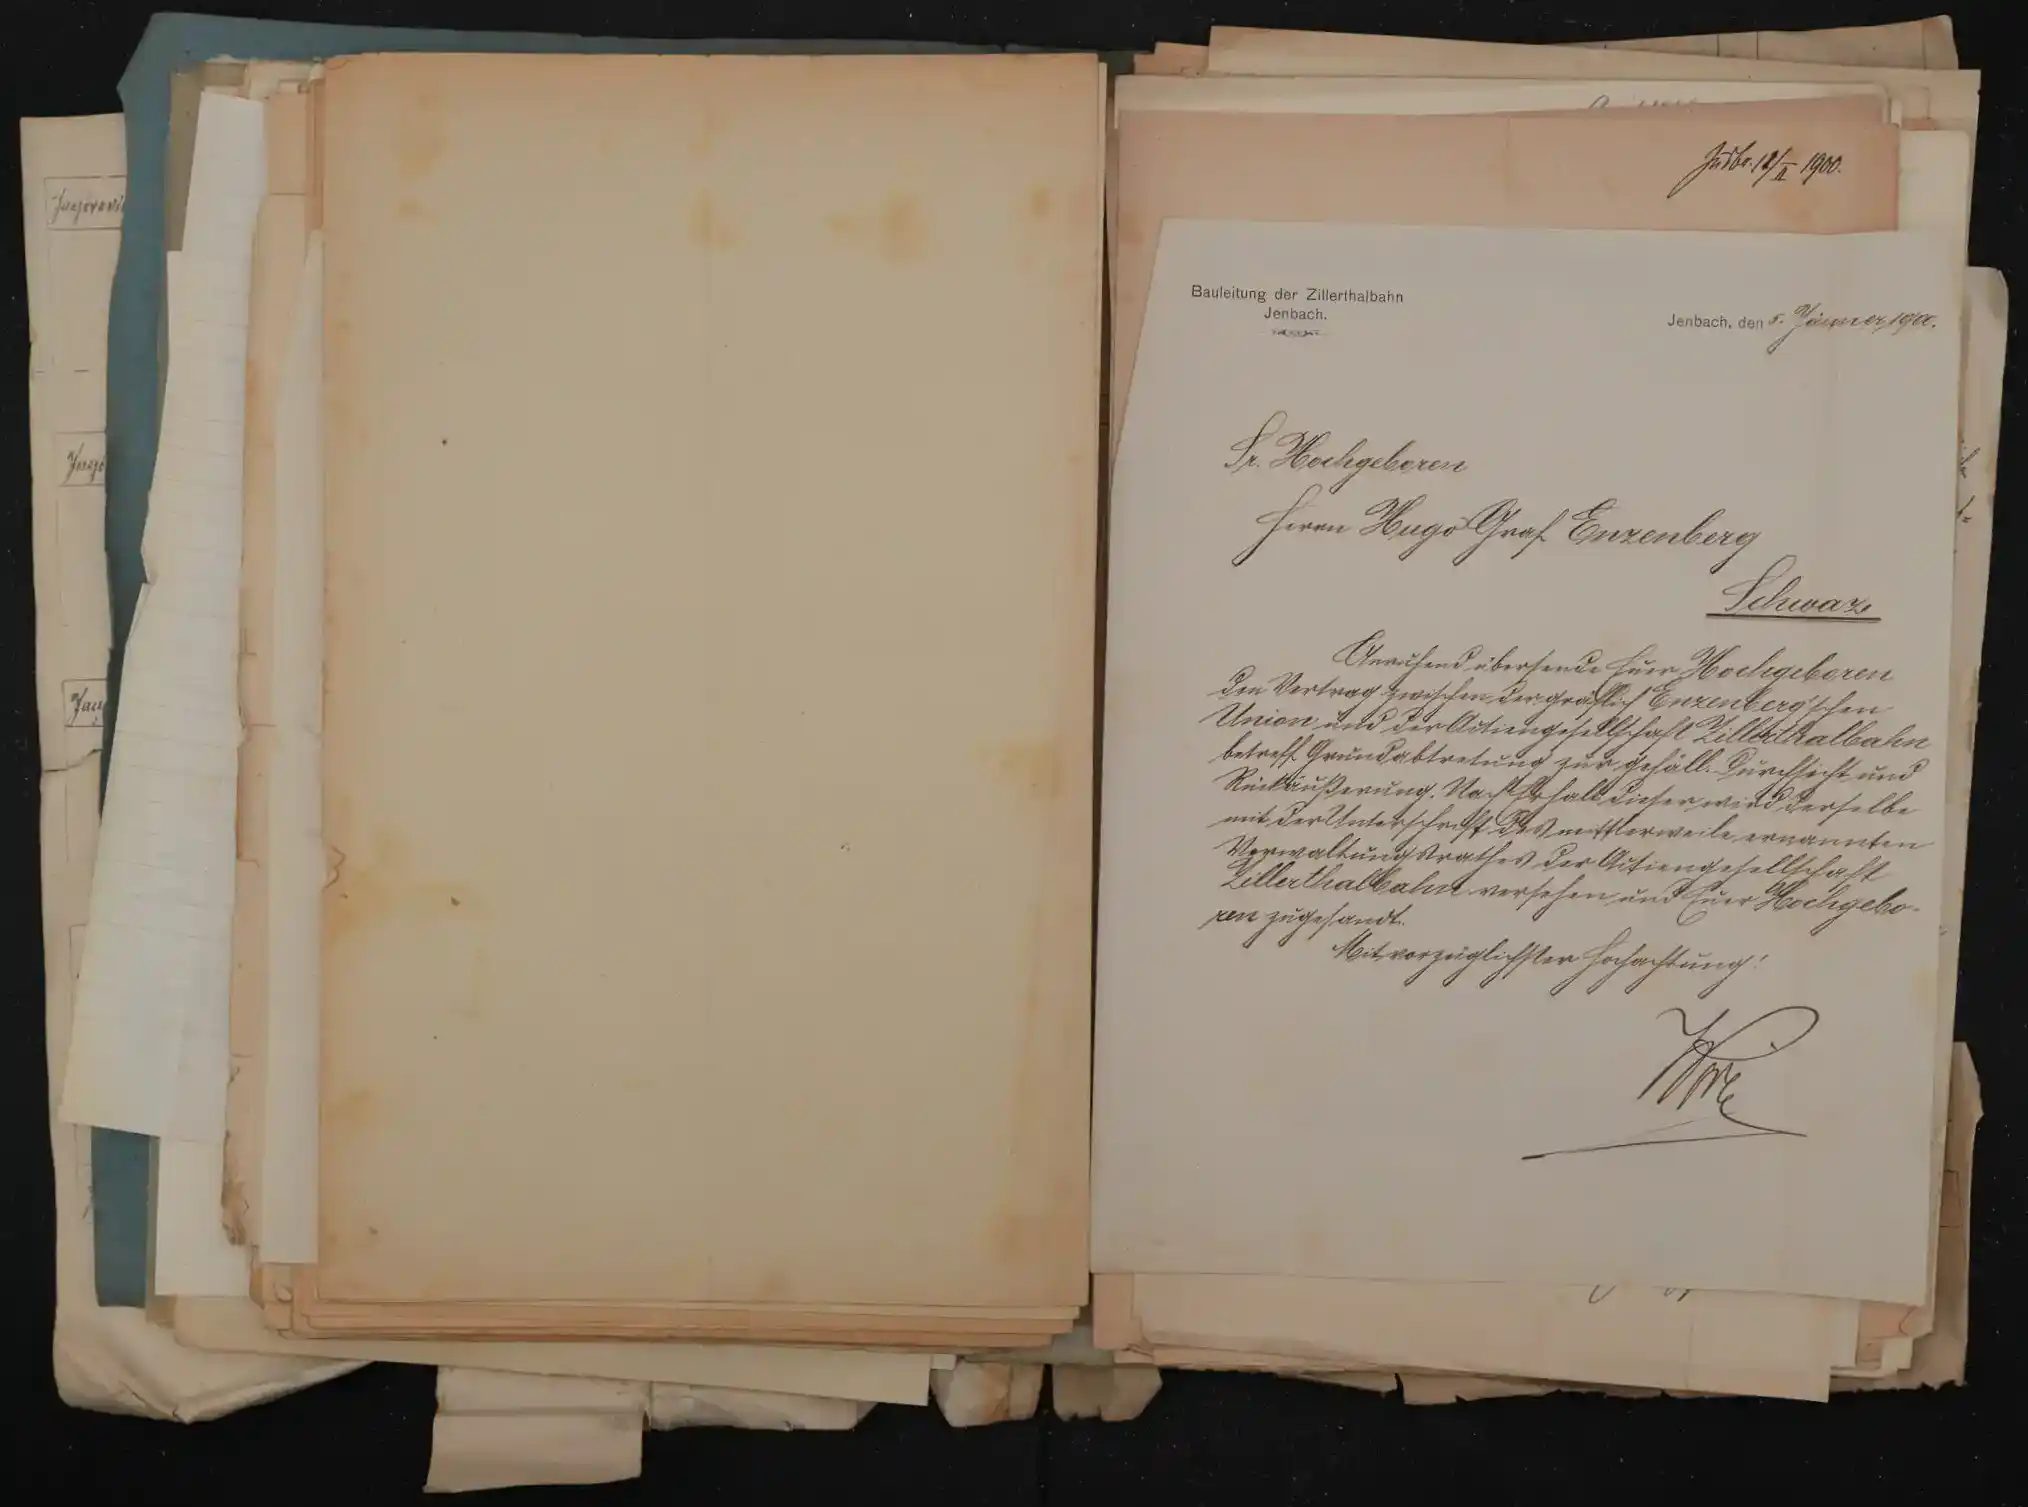 Jnsbr. 12/II 1900.
Bauleitung der Zillerthalbahn
Jenbach.
Jenbach, den 5. Jänner 1900.
Sr. Hochgeboren
Herrn Hugo Graf Enzenberg
Schwaz
Anruhend übersende Euer Hochgeboren
den Vertrag zwischen der gräflich Enzenberg'schen
Union und der Actiengesellschaft Zillerthalbahn
betreff Grundabtretung zur gefäll. Durchsicht und
Rückäußerung. Nach Erhalt dieser wird derselbe
mit der Unterschrift des mittlerweile ernannten
Verwaltungsrathes der Actiengesellschaft
Zillerthalbahn versehen und Euer Hochgebo-
ren zugesandt.
Mit vorzüglichster Hochachtung!